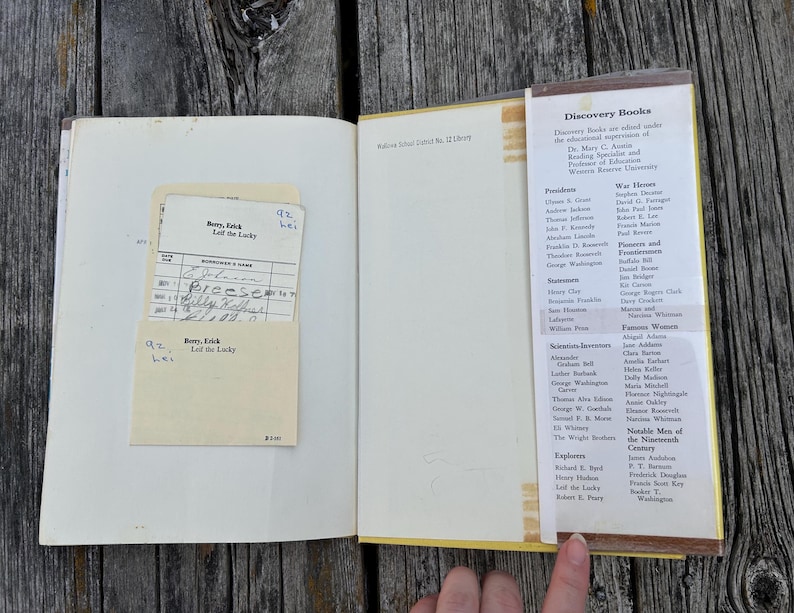 DATE
92
Lei
Berry, Erick
Leif the Lucky
APR
DATE DUE
BORROWER'S NAME
E Johnson
Breese
Billy
Berry, Erick
Leif the Lucky
92
Lei
B 2-161
Wallowa School District No. 12 Library
Discovery Books
Discovery Books are edited under
the educational supervision of
Dr. Mary C. Austin
Reading Specialist and
Professor of Education
Western Reserve University
Presidents
Ulysses S. Grant
Andrew Jackson
Thomas Jefferson
John F. Kennedy
Abraham Lincoln
Franklin D. Roosevelt
Theodore Roosevelt
George Washington
Statesmen
Henry Clay
Benjamin Franklin
Sam Houston
Lafayette
William Penn
Scientists-Inventors
Alexander
Graham Bell
Luther Burbank
George Washington
Carver
Thomas Alva Edison
George W. Goethals
Samuel F. B. Morse
Eli Whitney
The Wright Brothers
Explorers
Richard E. Byrd
Henry Hudson
Leif the Lucky
Robert E. Peary
War Heroes
Stephen Decatur
David G. Farragut
John Paul Jones
Robert E. Lee
Francis Marion
Paul Revere
Pioneers and
Frontiersmen
Buffalo Bill
Daniel Boone
Jim Bridger
Kit Carson
George Rogers Clark
Davy Crockett
Marcus and
Narcissa Whitman
Famous Women
Abigail Adams
Jane Addams
Clara Barton
Amelia Earhart
Helen Keller
Dolly Madison
Maria Mitchell
Florence Nightingale
Annie Oakley
Eleanor Roosevelt
Narcissa Whitman
Notable Men of
the Nineteenth
Century
James Audubon
P. T. Barnum
Frederick Douglass
Francis Scott Key
Booker T.
Washington